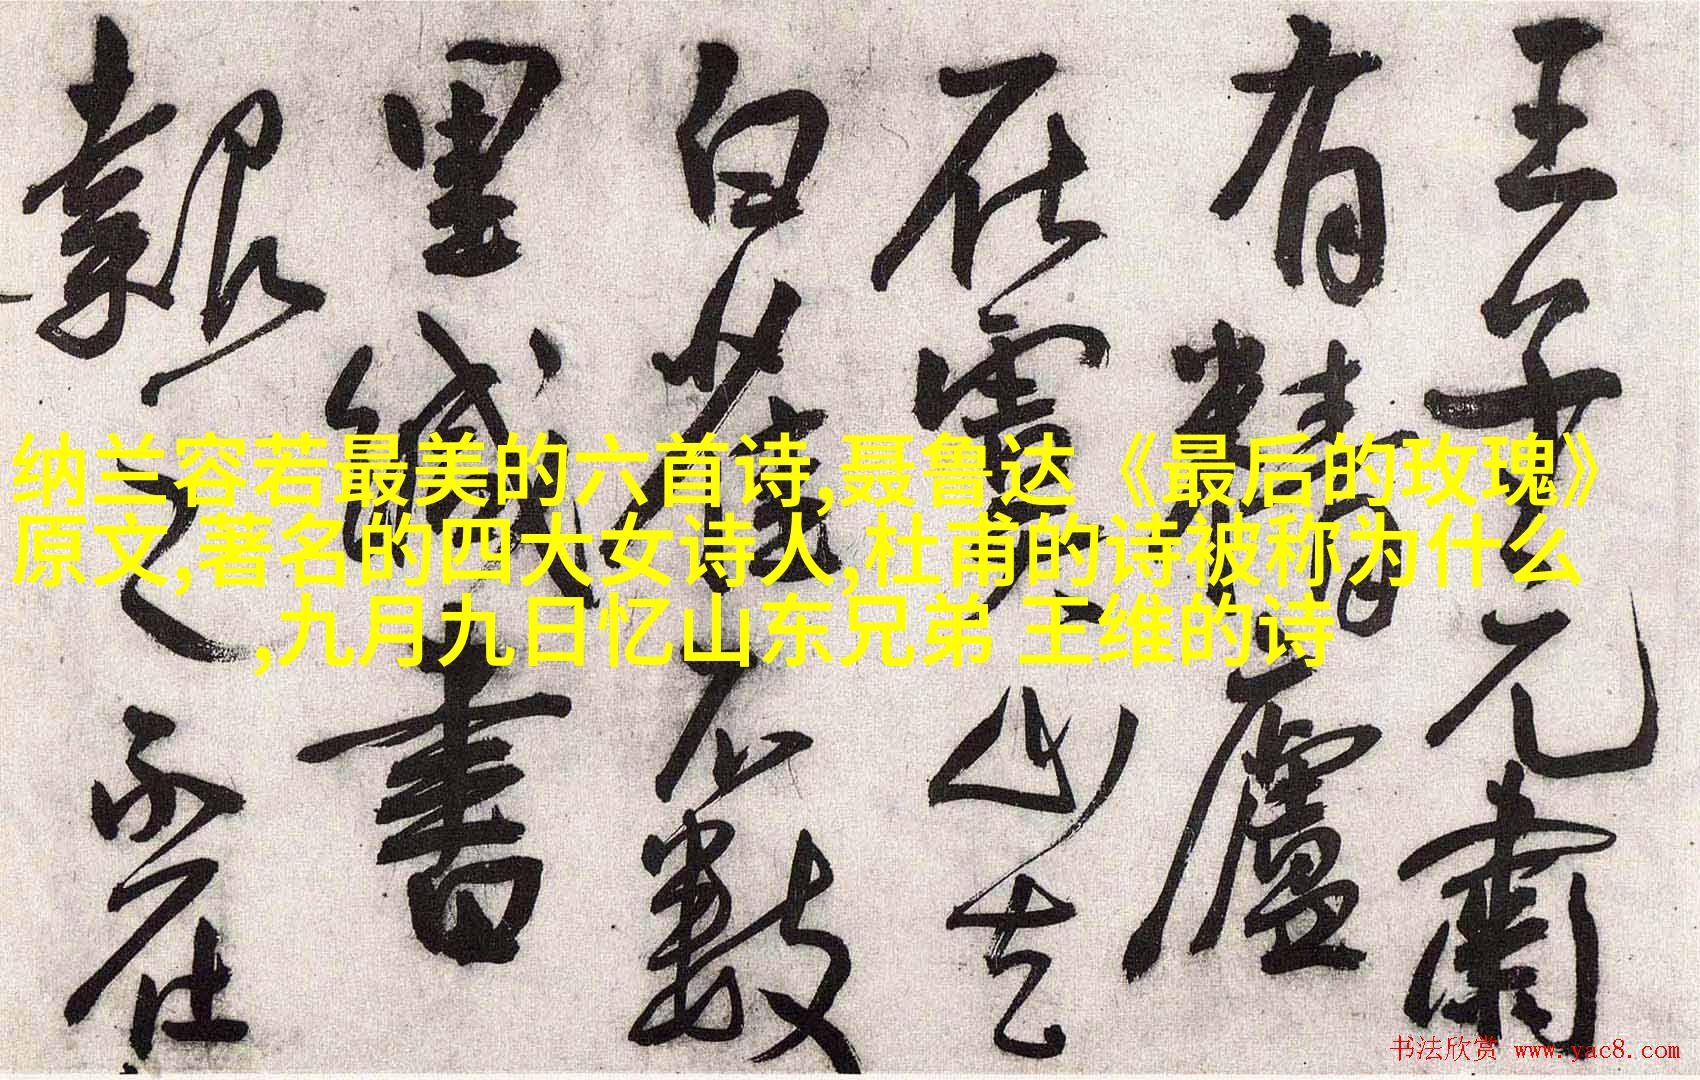 王子元肅
有精廬
在靈山去
白不數
里緘書
報之不在
纳兰容若最美的六首诗,聂鲁达《最后的玫瑰》
原文,著名的四大女诗人,杜甫的诗被称为什么
,九月九日忆山东兄弟 王维的诗
书法欣赏 www.yac8.com